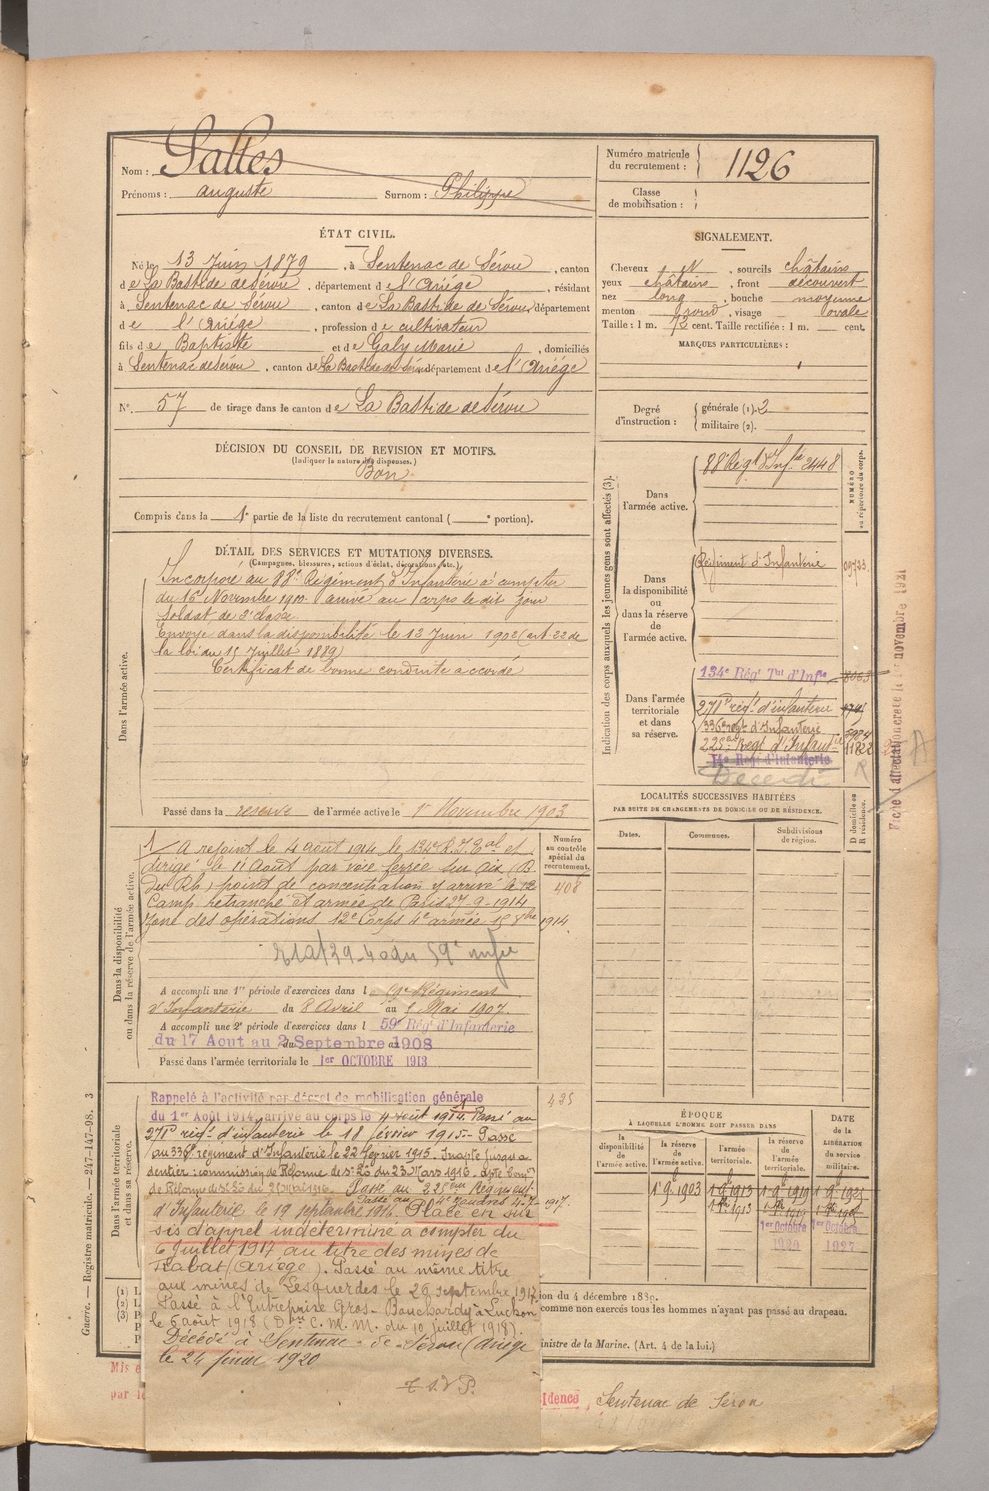 Nom :
Prénoms : auguste Surnom : Philippe
Numéro matricule du recrutement : 1126
Classe de mobilisation :
ÉTAT CIVIL.
Né le 13 Juin 1879, à Sentenac de Sérou, canton
de La Bastide de Sérou, département de l'Ariége, résidant
à Sentenac de Sérou, canton de La Bastide de Sérou, département
de l'Ariége, profession de cultivateur
fils de Baptiste et de Galy Marie, domiciliés
à Sentenac de Sérou, canton de La Bastide de Sérou département de l'Ariége
N° 57 de tirage dans le canton de La Bastide de Sérou
SIGNALEMENT.
Cheveux , sourcils châtains
yeux châtains, front découvert
nez long, bouche moyenne
menton rond, visage ovale
Taille : 1 m. 72 cent. Taille rectifiée : 1 m. cent.
MARQUES PARTICULIÈRES :
Degré d'instruction : générale (1). 2
militaire (2).
DÉCISION DU CONSEIL DE REVISION ET MOTIFS.
(Indiquer la nature des dispenses.)
Bon
Compris dans la 1e partie de la liste du recrutement cantonal ( e portion).
DÉTAIL DES SERVICES ET MUTATIONS DIVERSES.
(Campagnes, blessures, actions d'éclat, décorations, etc.)
Dans l'armée active.
Incorporé au 88e Régiment d'Infanterie à compter
du 16 Novembre 1900 arrivé au corps le dit jour
soldat de 2e classe
Envoyé dans la disponibilité le 13 Juin 1902 (art 22 de
la loi du 15 Juillet 1889)
Certificat de bonne conduite accordé
Passé dans la réserve de l'armée active le 1er Novembre 1903
Indication des corps auxquels les jeunes gens sont affectés (3).
NUMÉRO au répertoire du corps.
Dans l'armée active.
88e Régt d'Infie 2448
Dans la disponibilité ou dans la réserve de l'armée active.
Régiment d'Infanterie
Dans l'armée territoriale et dans sa réserve.
134e Régt Tal d'Infie
271e régt d'infanterie
336e régt d'Infanterie
225e Régt d'Infanterie 11822
14e Régt d'Infanterie
Décédé
novembre 1921
Dans la disponibilité ou dans la réserve de l'armée active.
A rejoint le 4 août 1914 le 134e R.I.Tal et
dirigé le 11 Août par voie ferrée sur Aix (B.
du Rh.) point de concentration y arrivé le 12
Camp retranché et armée de Paris 27-9-1914
Zone des opérations 12e Corps 4e armée 1914
Numéro au contrôle spécial du recrutement.
408
A accompli une 1re période d'exercices dans le Régiment
d'Infanterie du 8 Avril au 5 Mai 1907
A accompli une 2e période d'exercices dans l 59e Régt d'Infanterie
du 17 Aout au 2 Septembre 1908
Passé dans l'armée territoriale le 1er OCTOBRE 1913
LOCALITÉS SUCCESSIVES HABITÉES
PAR SUITE DE CHANGEMENTS DE DOMICILE OU DE RÉSIDENCE.
Dates. Communes. Subdivisions de région. D domicile ou R résidence.
Dans l'armée territoriale et dans sa réserve.
Rappelé à l'activité par décret de mobilisation générale
du 1er Août 1914, arrivé au corps le 4 Août 1914. Passé au
271e régt d'infanterie le 18 février 1915. Passé
au 336e régiment d'Infanterie le 22 février 1915. Inapte jusqu'à
dentier : commission de Réforme de St Lô du 23 Mars 1916.
de Réforme de St Lô du Passé au 225eme Régiment
d'Infanterie le 19 septembre 1916. Placé en sur
sis d'appel indéterminé à compter du
6 Juillet 1917 au titre des mines de
Rabat (Ariège). Passé au même titre
aux mines de Lesquerdes le 29 septembre 1917
Passé à l'Entreprise Gros-Bouchardy à Luchon
le 6 août 1918 (Don C.M.M. du 10 juillet 1918).
Décédé à Sentenac-de-Sérou (Ariège
le 24 février 1920
T.S.V.P.
ÉPOQUE
À LAQUELLE L'HOMME DOIT PASSER DANS
la disponibilité de l'armée active. la réserve de l'armée active. l'armée territoriale. la réserve de l'armée territoriale.
DATE de la LIBÉRATION du service militaire.
1er 9 1903 1er 9 1913 1er 9 1919
1er Octobre 1er Octobre
ion du 4 décembre 1889.
comme non exercés tous les hommes n'ayant pas passé au drapeau.
inistre de la Marine. (Art. 4 de la loi.)
Guerre. — Registre matricule. — 247-147-98. 3
Mis e
par l
sidence Sentenac de Sérou